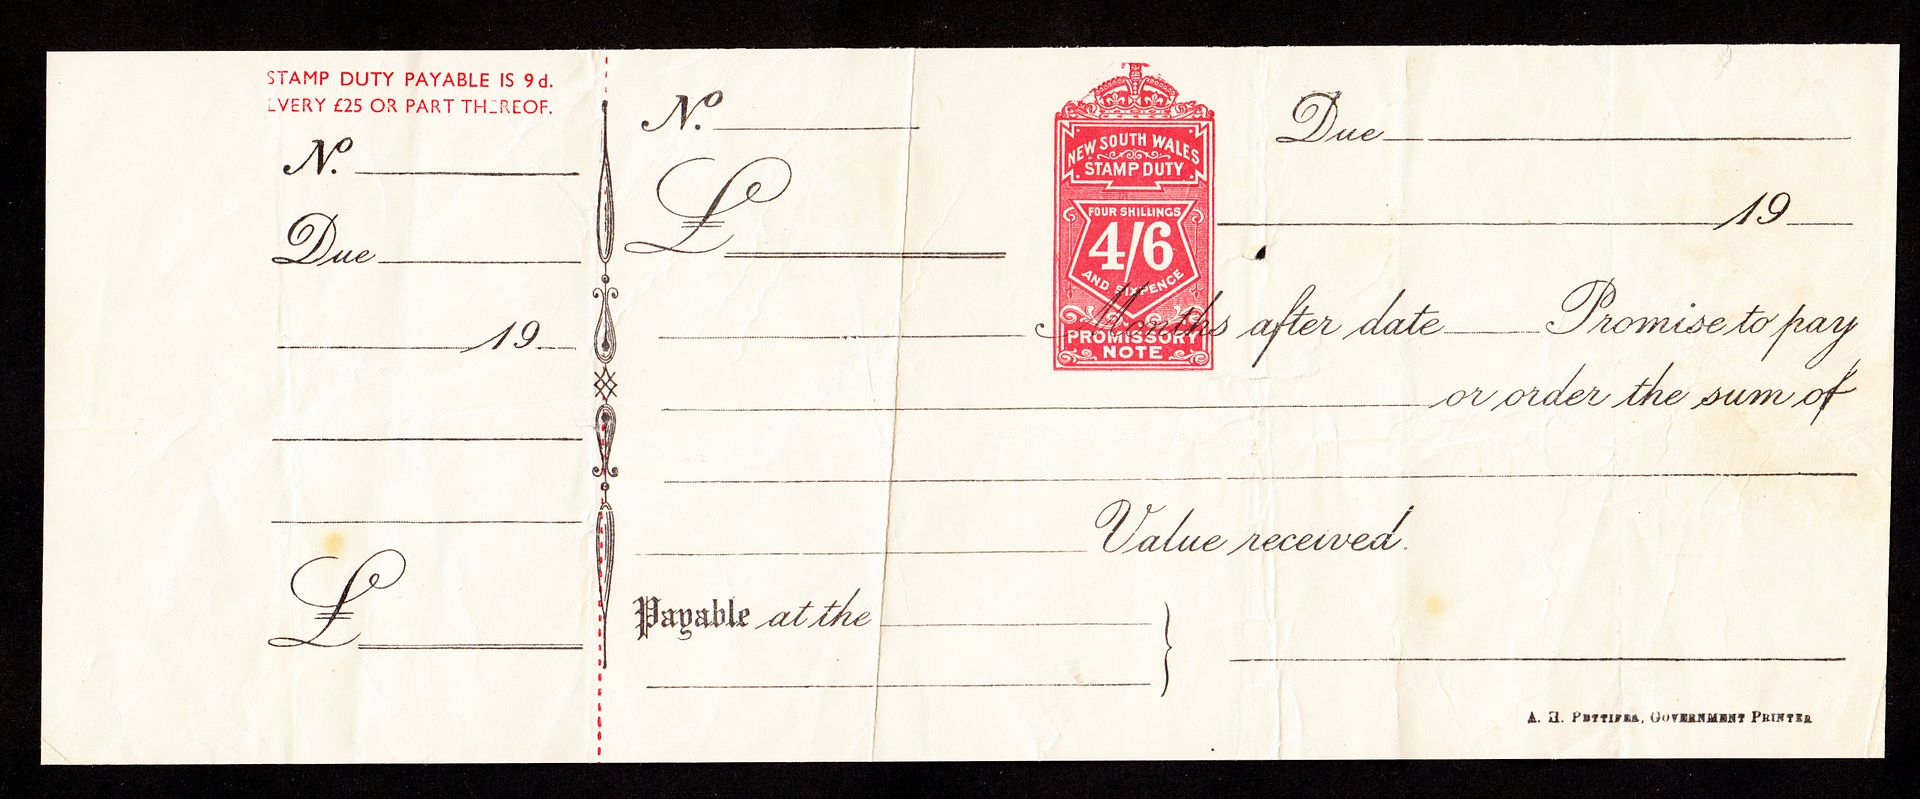 STAMP DUTY PAYABLE IS 9d.
EVERY £25 OR PART THEREOF.
No.
Due
19
£
No.
£
NEW SOUTH WALES
STAMP DUTY
FOUR SHILLINGS
4/6
AND SIXPENCE
PROMISSORY
NOTE
Due
19
Months after date Promise to pay
or order the sum of
Value received.
Payable at the
A. H. PETTIFER, GOVERNMENT PRINTER